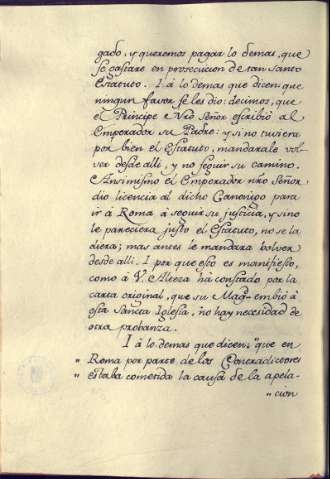 gado, y queremos pagar lo demas, que
se gastare en prosecucion de tan santo
Estatuto. I á lo demas que dicen, que
ningun favor se les dio: decimos, que
el Principe e Vrõ Señor escribió al
Emperador su Padre: y si no tuviera
por bien el Estatuto, mandarale vol-
ver desde alli, y no seguir su camino.
Ansimismo el Emperador nrõ Señor
dio licencia al dicho Canonigo para
ir á Roma á seguir su justicia, y si no
le pareciera justo el Estatuto, no se la
diera; mas antes le mandara bolver
desde alli. I por que esto es manifiesto,
como á V. Alteza há constado por la
carta original, que su Mag. embió á
esta Sancta Iglesia, no hay necesidad de
otra probanza.
I á lo demas que dicen, "que en
" Roma por parte de los Contradictores
" estaba cometida la causa de la apela-
" cion